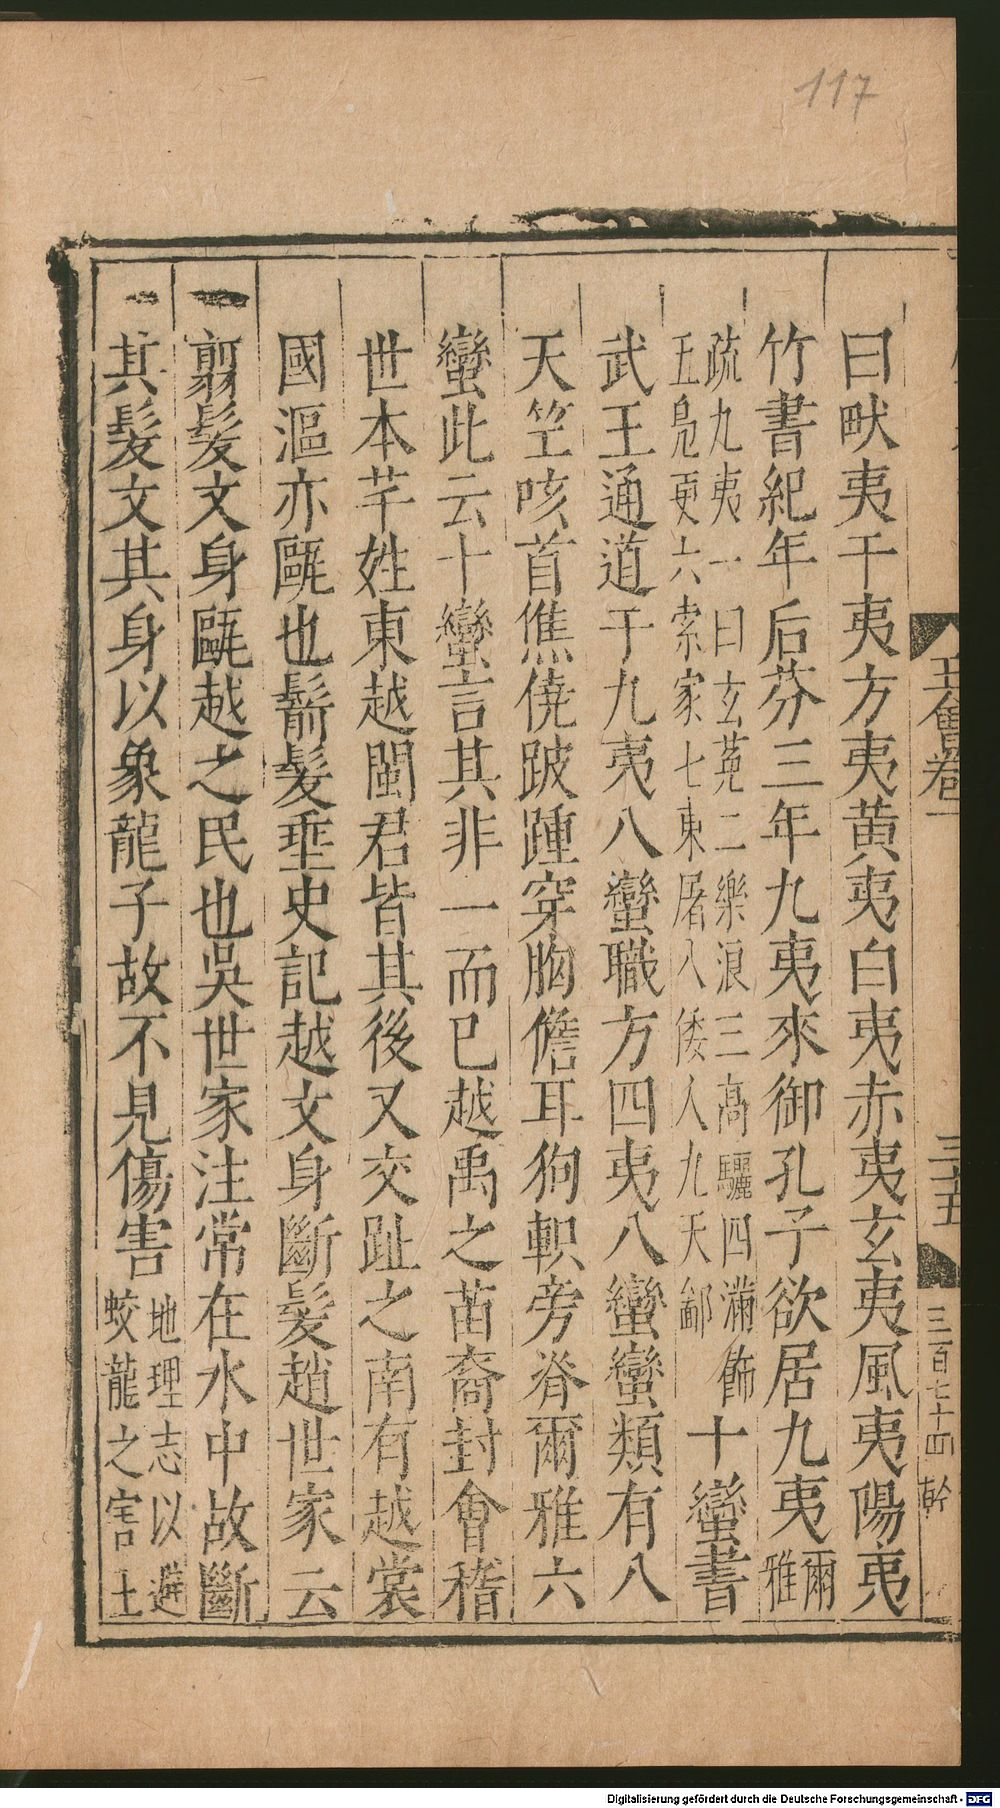 117
曰畎夷干夷方夷黄夷白夷赤夷玄夷風夷陽夷
竹書紀年后芬三年九夷來御孔子欲居九夷爾雅
疏九夷一曰玄菟二樂浪三高驪四滿飾五鳧更六索家七東屠八倭人九天鄙十蠻書
武王通道于九夷八蠻職方四夷八蠻蠻類有八
天竺咳首僬僥跛踵穿胸儋耳狗軹旁脊爾雅六
蠻此云十蠻言其非一而已越禹之苗裔封會稽
世本芊姓東越閩君皆其後又交趾之南有越裳
國漚亦甌也鬋髮垂史記越文身斷髮趙世家云
翦髮文身甌越之民也吳世家注常在水中故斷
其髮文其身以象龍子故不見傷害地理志以避蛟龍之害土
王會卷一
三十五
三百七十四
幹
Digitalisierung gefördert durch die Deutsche Forschungsgemeinschaft - DFG